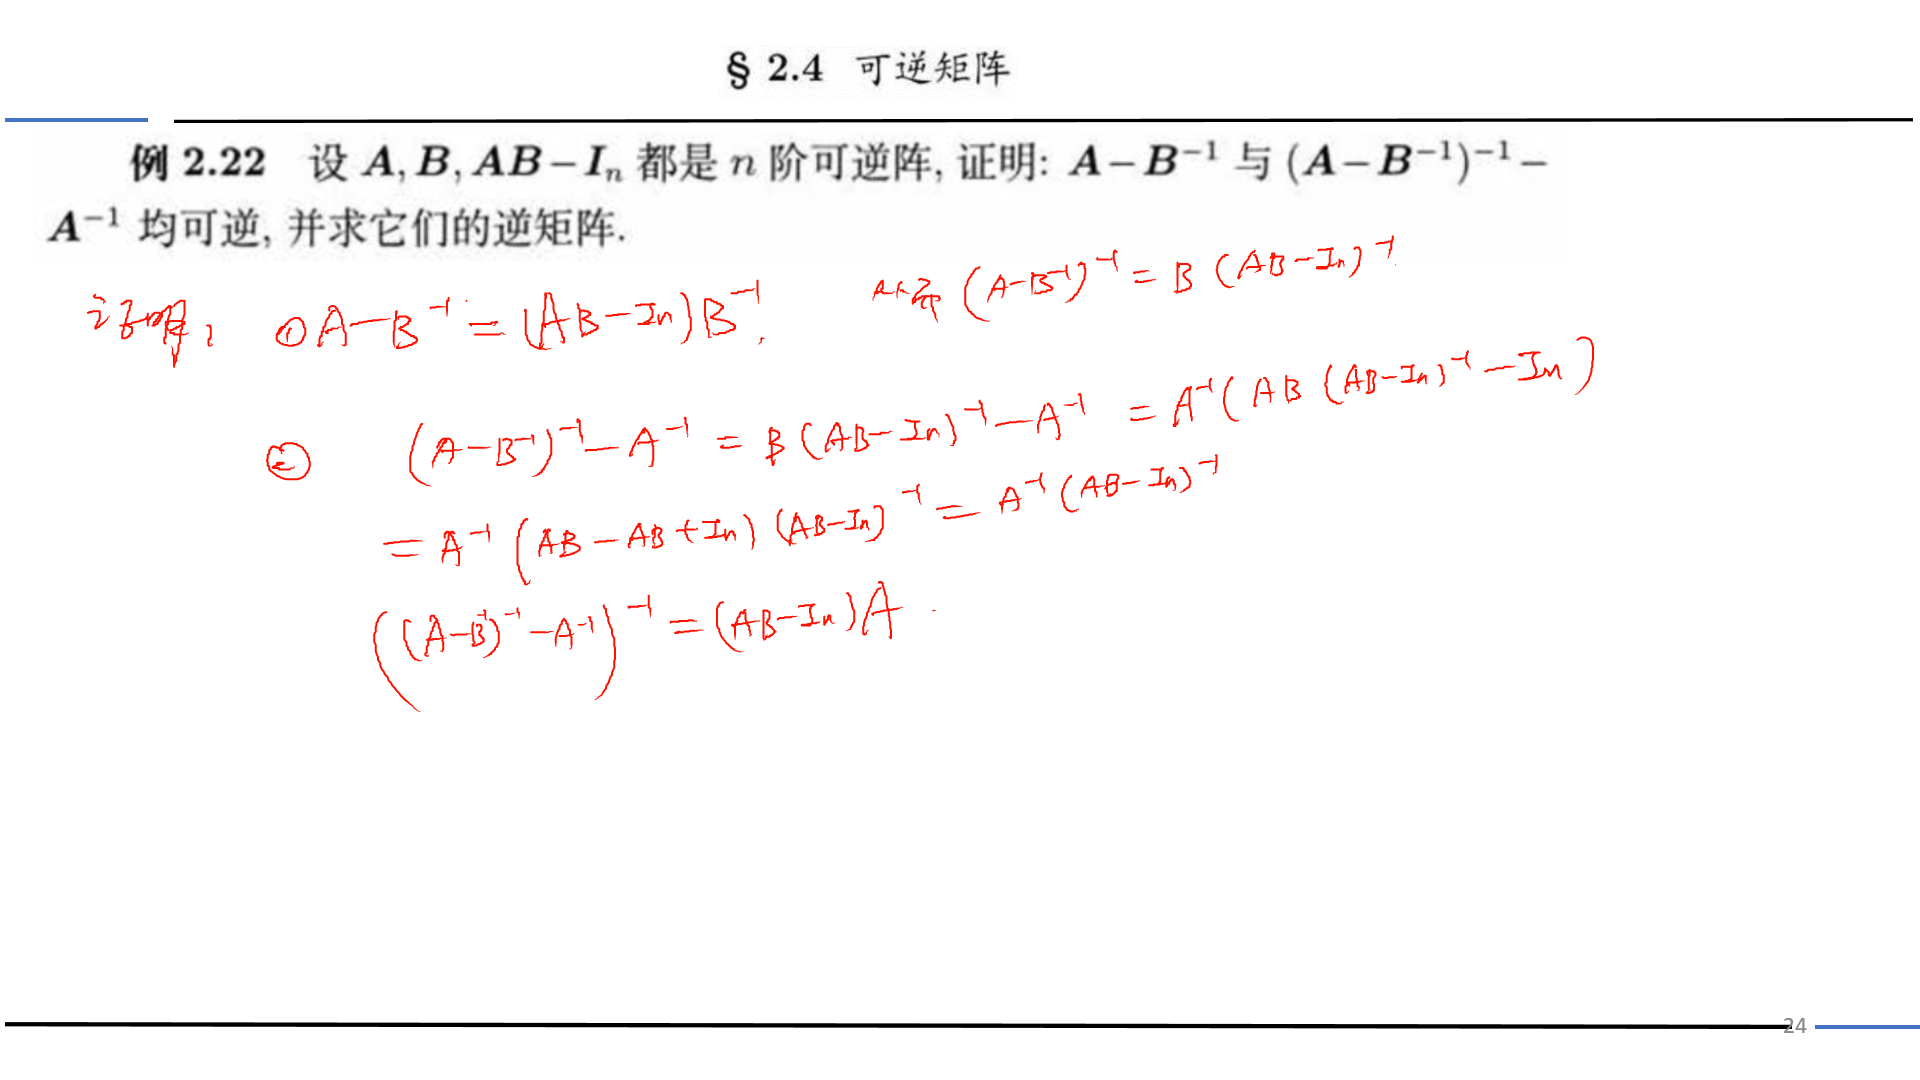 § 2.4 可逆矩阵
例 2.22 设 A, B, AB − Iₙ 都是 n 阶可逆阵, 证明: A − B⁻¹ 与 (A − B⁻¹)⁻¹ −
A⁻¹ 均可逆, 并求它们的逆矩阵.
证明: ① A − B⁻¹ = (AB − In)B⁻¹. 从而 (A−B⁻¹)⁻¹ = B (AB−In)⁻¹.
② (A−B⁻¹)⁻¹ − A⁻¹ = B (AB−In)⁻¹ − A⁻¹ = A⁻¹( AB (AB−In)⁻¹ − In )
= A⁻¹ (AB − AB + In) (AB−In)⁻¹ = A⁻¹ (AB−In)⁻¹
((A−B⁻¹)⁻¹ − A⁻¹)⁻¹ = (AB−In)A.
24